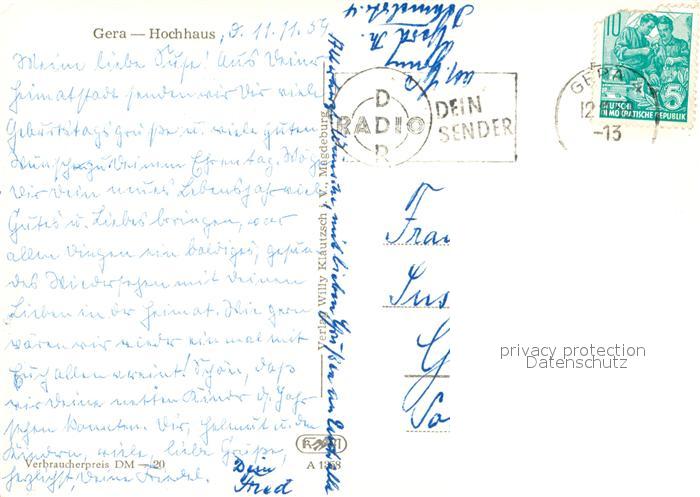 Gera — Hochhaus, d. 11.11.59
Meine liebe Suse! Aus Deiner
Heimatstadt senden wir Dir viele
Geburtstagsgrüße u. viele guten
Wünsche zu Deinem Ehrentag. Möge
Dir Dein neues Lebensjahr viel
Gutes u. Liebes bringen, vor
allen Dingen ein baldiges, gesun-
des Wiedersehen mit Deinen
Lieben in der Heimat. Wie gern
wären wir wieder einmal mit
Euch allen vereint! Schön, daß
wir Deine netten Kinder d. Jahr
sehen konnten. Dir, Helmut u. den
Kindern, viele, liebe Grüße,
herzlichst, Deine Friedel.
Dein
Fred
Verbraucherpreis DM —.20
A 1858
Verlag Willy Klautzsch K.V., Magdeburg
mit lieben Grüßen an Euch alle
DDR
RADIO
DEIN
SENDER
GERA
12
-13
10
DEUTSCHE
DEMOKRATISCHE REPUBLIK
5
Frau
Sus
G
privacy protection
Datenschutz